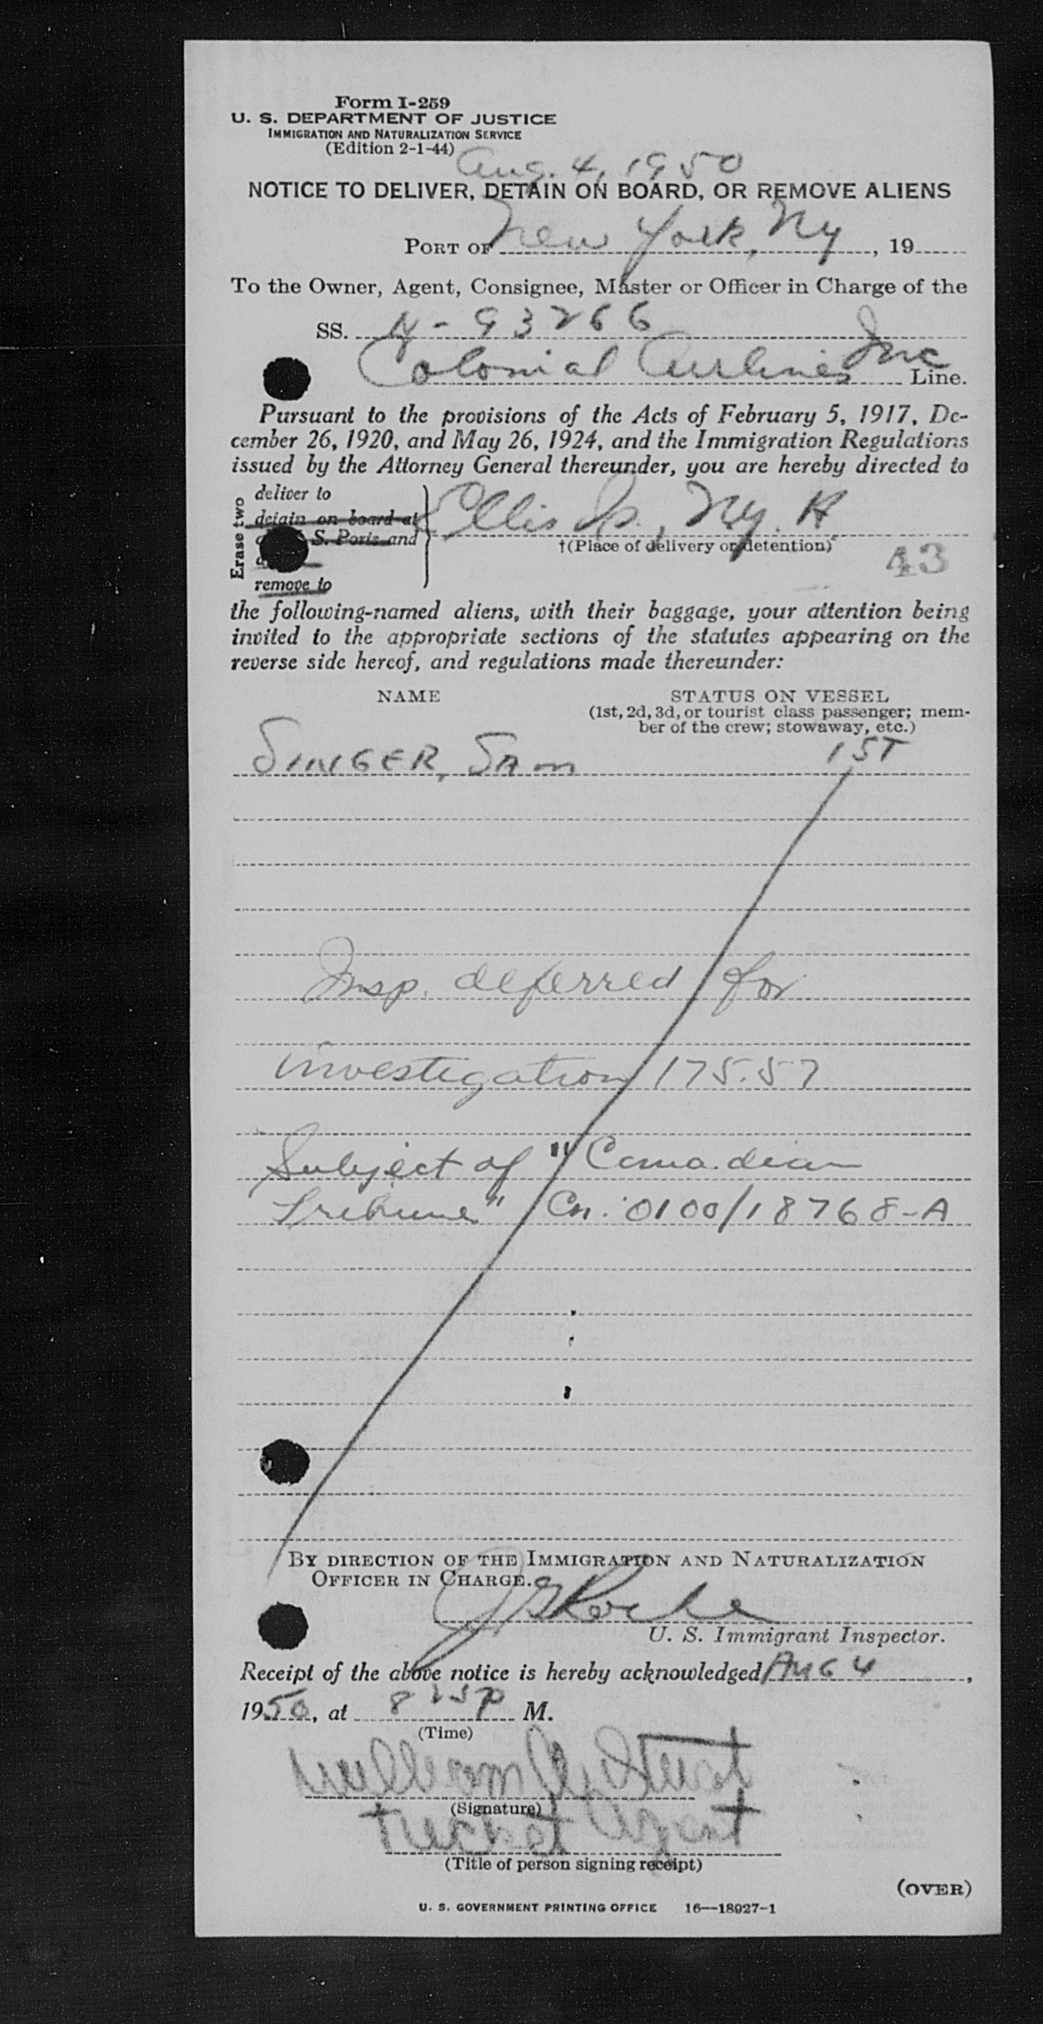 Form I-259
U. S. DEPARTMENT OF JUSTICE
IMMIGRATION AND NATURALIZATION SERVICE
(Edition 2-1-44)
Aug. 4, 1950
NOTICE TO DELIVER, DETAIN ON BOARD, OR REMOVE ALIENS
PORT OF New York, Ny, 19
To the Owner, Agent, Consignee, Master or Officer in Charge of the
SS. N-93266
Colonial Airlines Inc Line.
Pursuant to the provisions of the Acts of February 5, 1917, De-
cember 26, 1920, and May 26, 1924, and the Immigration Regulations
issued by the Attorney General thereunder, you are hereby directed to
Erase two
deliver to
detain on board at
S. Ports and
remove to
Ellis Is., Ny.
†(Place of delivery or detention)
43
the following-named aliens, with their baggage, your attention being
invited to the appropriate sections of the statutes appearing on the
reverse side hereof, and regulations made thereunder:
NAME STATUS ON VESSEL
(1st, 2d, 3d, or tourist class passenger; mem-
ber of the crew; stowaway, etc.)
SINGER, SAm 1ST
Insp. deferred for
investigation 175.57
Subject of "Canadian
Tribune" 0100/18768-A
BY DIRECTION OF THE IMMIGRATION AND NATURALIZATION
OFFICER IN CHARGE.
J G Roche
U. S. Immigrant Inspector.
Receipt of the above notice is hereby acknowledged Aug 4,
1950, at 8 p M.
(Time)
William
(Signature)
Ticket Agent
(Title of person signing receipt)
(OVER)
U. S. GOVERNMENT PRINTING OFFICE 16—18927-1